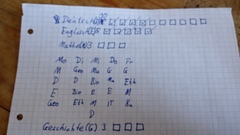 Deutsch
Englisch
Mathe 3
Mo Di Mi Do Fr
M Geo Ma G G
D D Bio Ma Eth
E Bio E E M
Geo Eth M IT Ba
D
Geschichte (G) 3